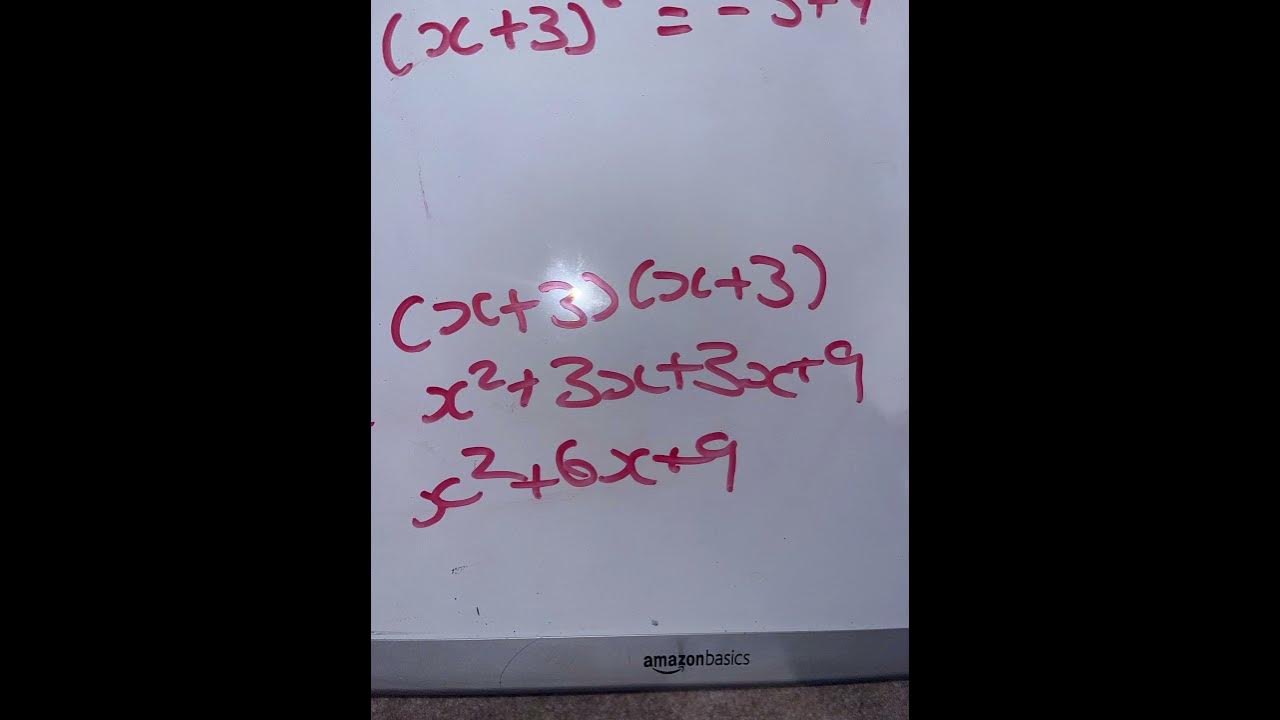 (x+3) = -
(x+3)(x+3)
x²+3x+3x+9
x²+6x+9
amazonbasics